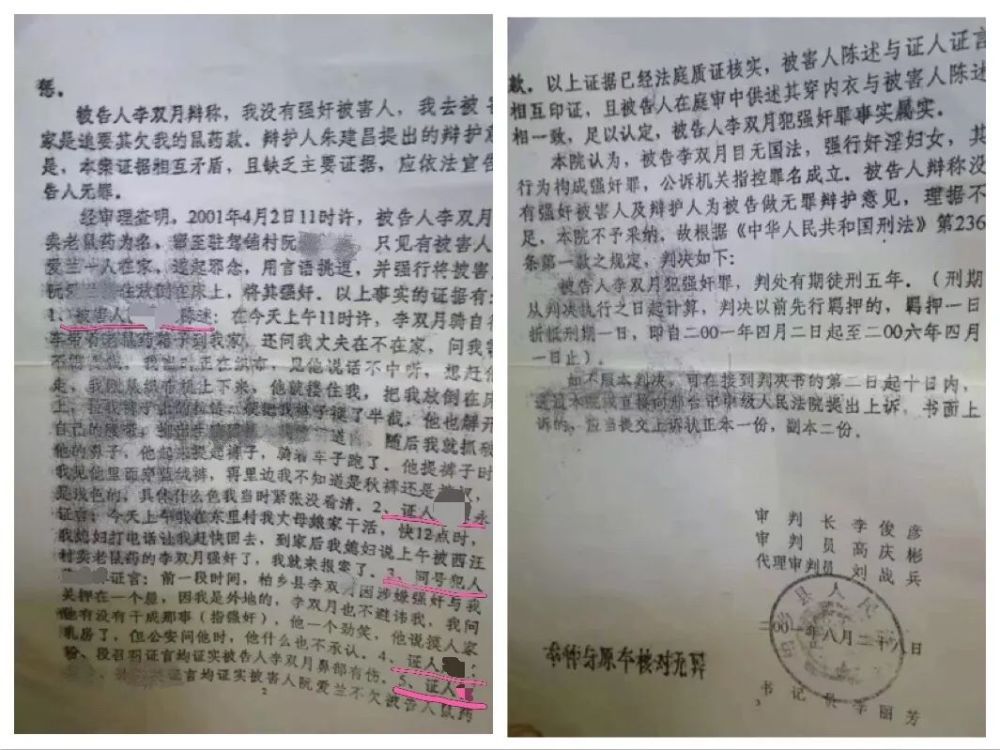 惩。
被告人李双月辩称，我没有强奸被害人，我去被害
家是追要其欠我的鼠药款。辩护人朱建昌提出的辩护意
是，本案证据相互矛盾，且缺乏主要证据，应依法宣告
告人无罪。
经审理查明，2001年4月2日11时许，被告人李双月
卖老鼠药为名，窜至驻驾铺村阮 只见有被害人
爱兰一人在家，遂起邪念，用言语挑逗，并强行将被害
阮 住放倒在床上，将其强奸。以上事实的证据有：
1、被害人 陈述：在今天上午11时许，李双月骑自
车带着老鼠药箱子到我家，还问我丈夫在不在家，问我
不 ，我当时正在织布，见他说话不中听，想赶他
走，我刚从织布机上下来，他就搂住我，把我放倒在床
上，拉我裤子 ，我裤子褪了半截，他也解开
自己的 随后我就抓破
他的鼻子，他起来提起裤子，骑着车子跑了。他提裤子时
我见他里面穿蓝绒裤，再里边我不知道是秋裤还是
是浅色的，具体什么色我当时紧张没看清。2、证人 永
证言：今天上午我在东里村我丈母娘家干活，快12点时，
我媳妇打电话让我赶快回去，到家后我媳妇说上午被西汪
村卖老鼠药的李双月强奸了，我就来报案了。3、同号犯人
证言：前一段时间，柏乡县李双月因涉嫌强奸与我
关押在一个屋，因我是外地的，李双月也不避讳我，我问
他有没有干成那事（指强奸），他一个劲笑，他说摸人家
乳房了，但公安问他时，他什么也不承认。4、证人
、段召明证言均证实被告人李双月鼻部有伤。5、证人
证言均证实被害人阮爱兰不欠被告人鼠药
2
款。以上证据已经法庭质证核实，被害人陈述与证人证言
相互印证，且被告人在庭审中供述其穿内衣与被害人陈述
相一致，足以认定，被告人李双月犯强奸罪事实属实。
本院认为，被告李双月目无国法，强行奸淫妇女，其
行为构成强奸罪，公诉机关指控罪名成立。被告人辩称没
有强奸被害人及辩护人为被告做无罪辩护意见，理据不
足，本院不予采纳。故根据《中华人民共和国刑法》第236
条第一款之规定，判决如下：
被告人李双月犯强奸罪，判处有期徒刑五年。（刑期
从判决执行之日起计算，判决以前先行羁押的，羁押一日
折抵刑期一日，即自二00一年四月二日起至二00六年四月
一日止）。
如不服本判决，可在接到判决书的第二日起十日内，
通过本院或直接向邢台市中级人民法院提出上诉，书面上
诉的，应当提交上诉状正本一份，副本二份。
审判长 李俊彦
审判员 高庆彬
代理审判员 刘战兵
县人民
二00一年八月二十八日
本件与原本核对无异
书记员 李丽芳
3